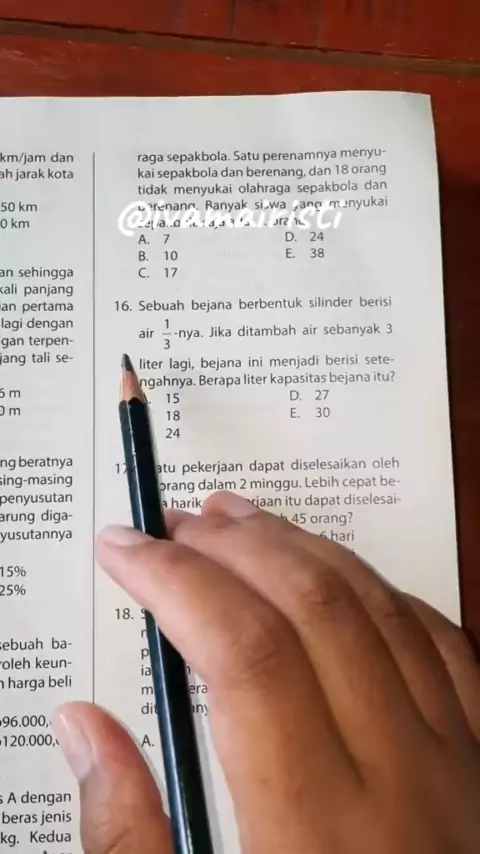 km/jam dan
ah jarak kota
50 km
0 km
an sehingga
kali panjang
ian pertama
lagi dengan
gan terpen-
jang tali se-
5 m
0 m
ng beratnya
sing-masing
penyusutan
arung diga-
yusutannya
15%
25%
sebuah ba-
roleh keun-
n harga beli
96.000,
120.000,
s A dengan
beras jenis
kg. Kedua
raga sepakbola. Satu perenamnya menyu-
kai sepakbola dan berenang, dan 18 orang
tidak menyukai olahraga sepakbola dan
berenang. Banyak siswa yang menyukai
@ivamairisti
A. 7 D. 24
B. 10 E. 38
C. 17
16. Sebuah bejana berbentuk silinder berisi
air 1/3-nya. Jika ditambah air sebanyak 3
liter lagi, bejana ini menjadi berisi sete-
ngahnya. Berapa liter kapasitas bejana itu?
15 D. 27
18 E. 30
24
17 atu pekerjaan dapat diselesaikan oleh
orang dalam 2 minggu. Lebih cepat be-
harik rjaan itu dapat diselesai-
45 orang?
6 hari
18.
A.